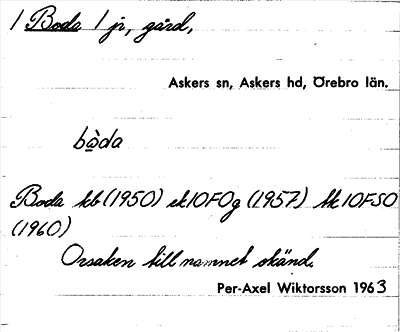 / Boda / jr, gård,
Askers sn, Askers hd, Örebro län.
bòda
Boda kb (1950) ek 10F0g (1957) tk 10FSO
(1960)
Orsaken till namnet okänd.
Per-Axel Wiktorsson 1963